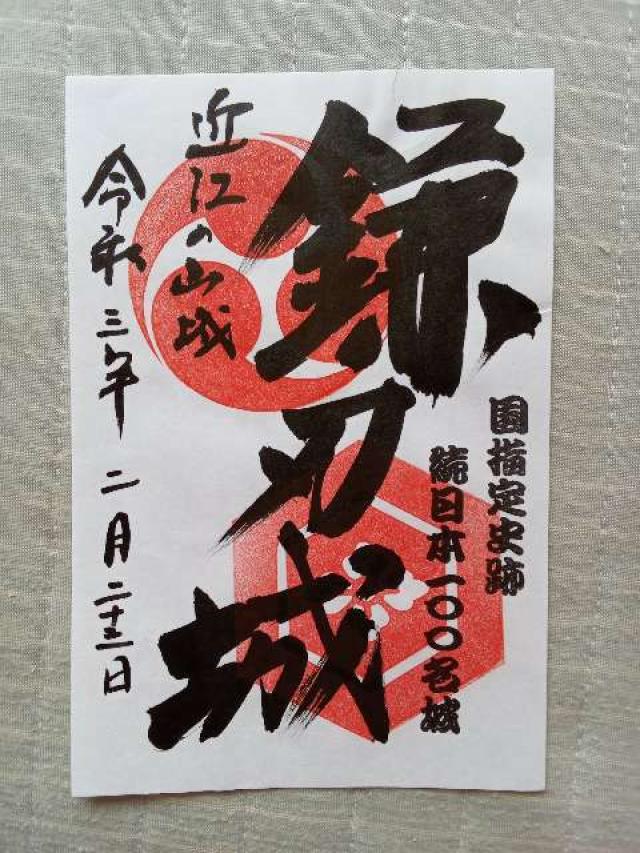 国指定史跡
続日本一〇〇名城
鎌刃城
近江の山城
令和三年二月二十三日